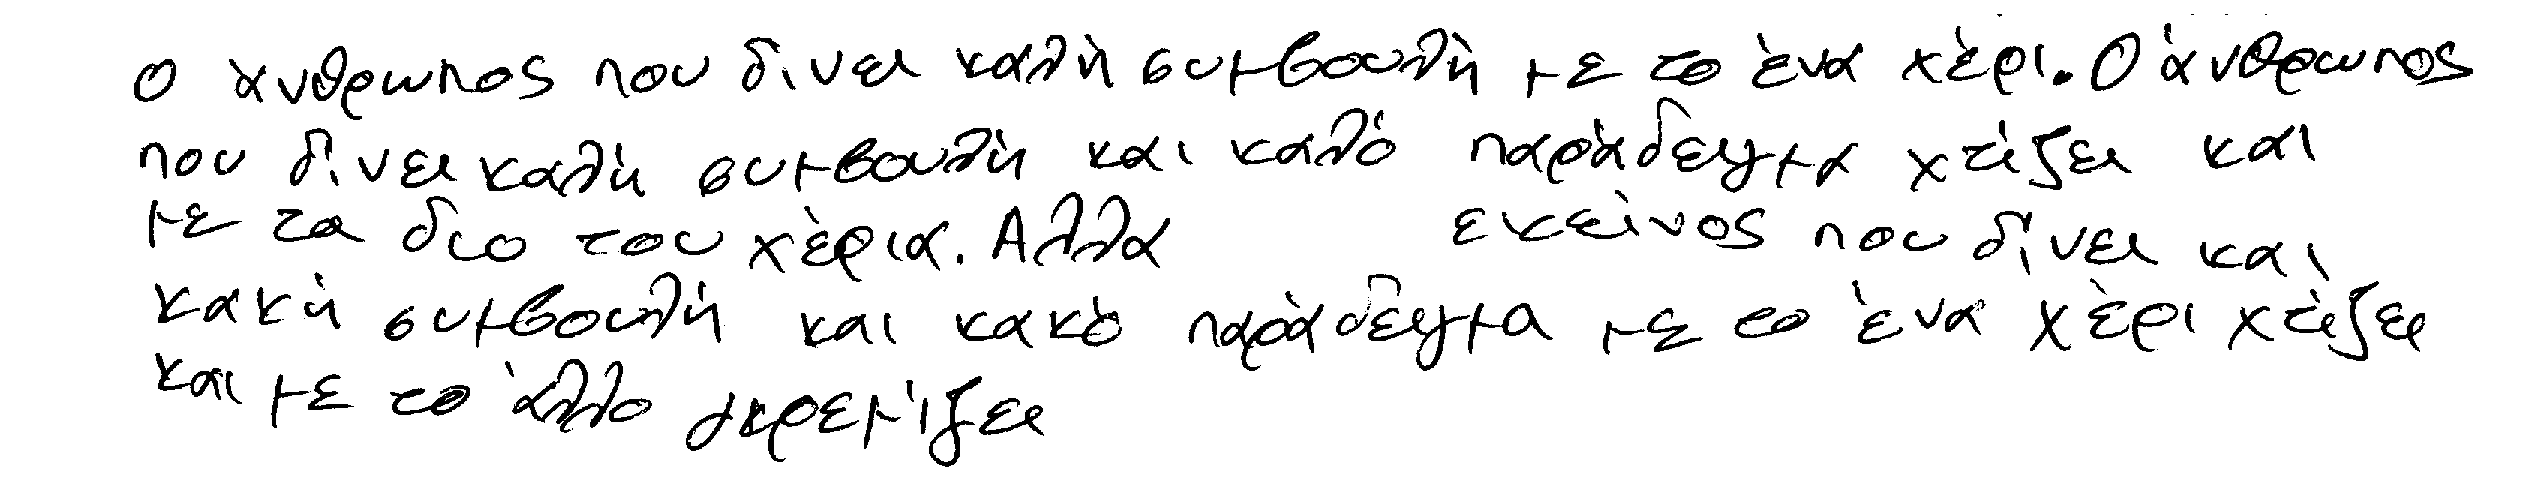 Ο άνθρωπος που δίνει καλή συμβουλή με το ένα χέρι. Ο άνθρωπος
που δίνει καλή συμβουλή και καλό παράδειγμα χτίζει και
με τα δυο του χέρια. Αλλα εκείνος που δίνει και
κακή συμβουλή και κακό παράδειγμα με το ένα χέρι χτίζει
και με το άλλο γκρεμίζει